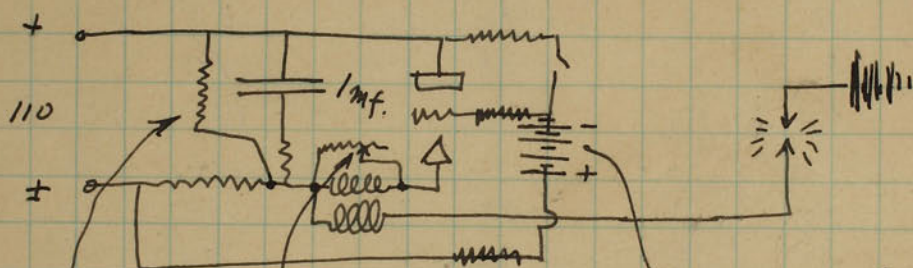 +
110
1 mf.
±
-
+